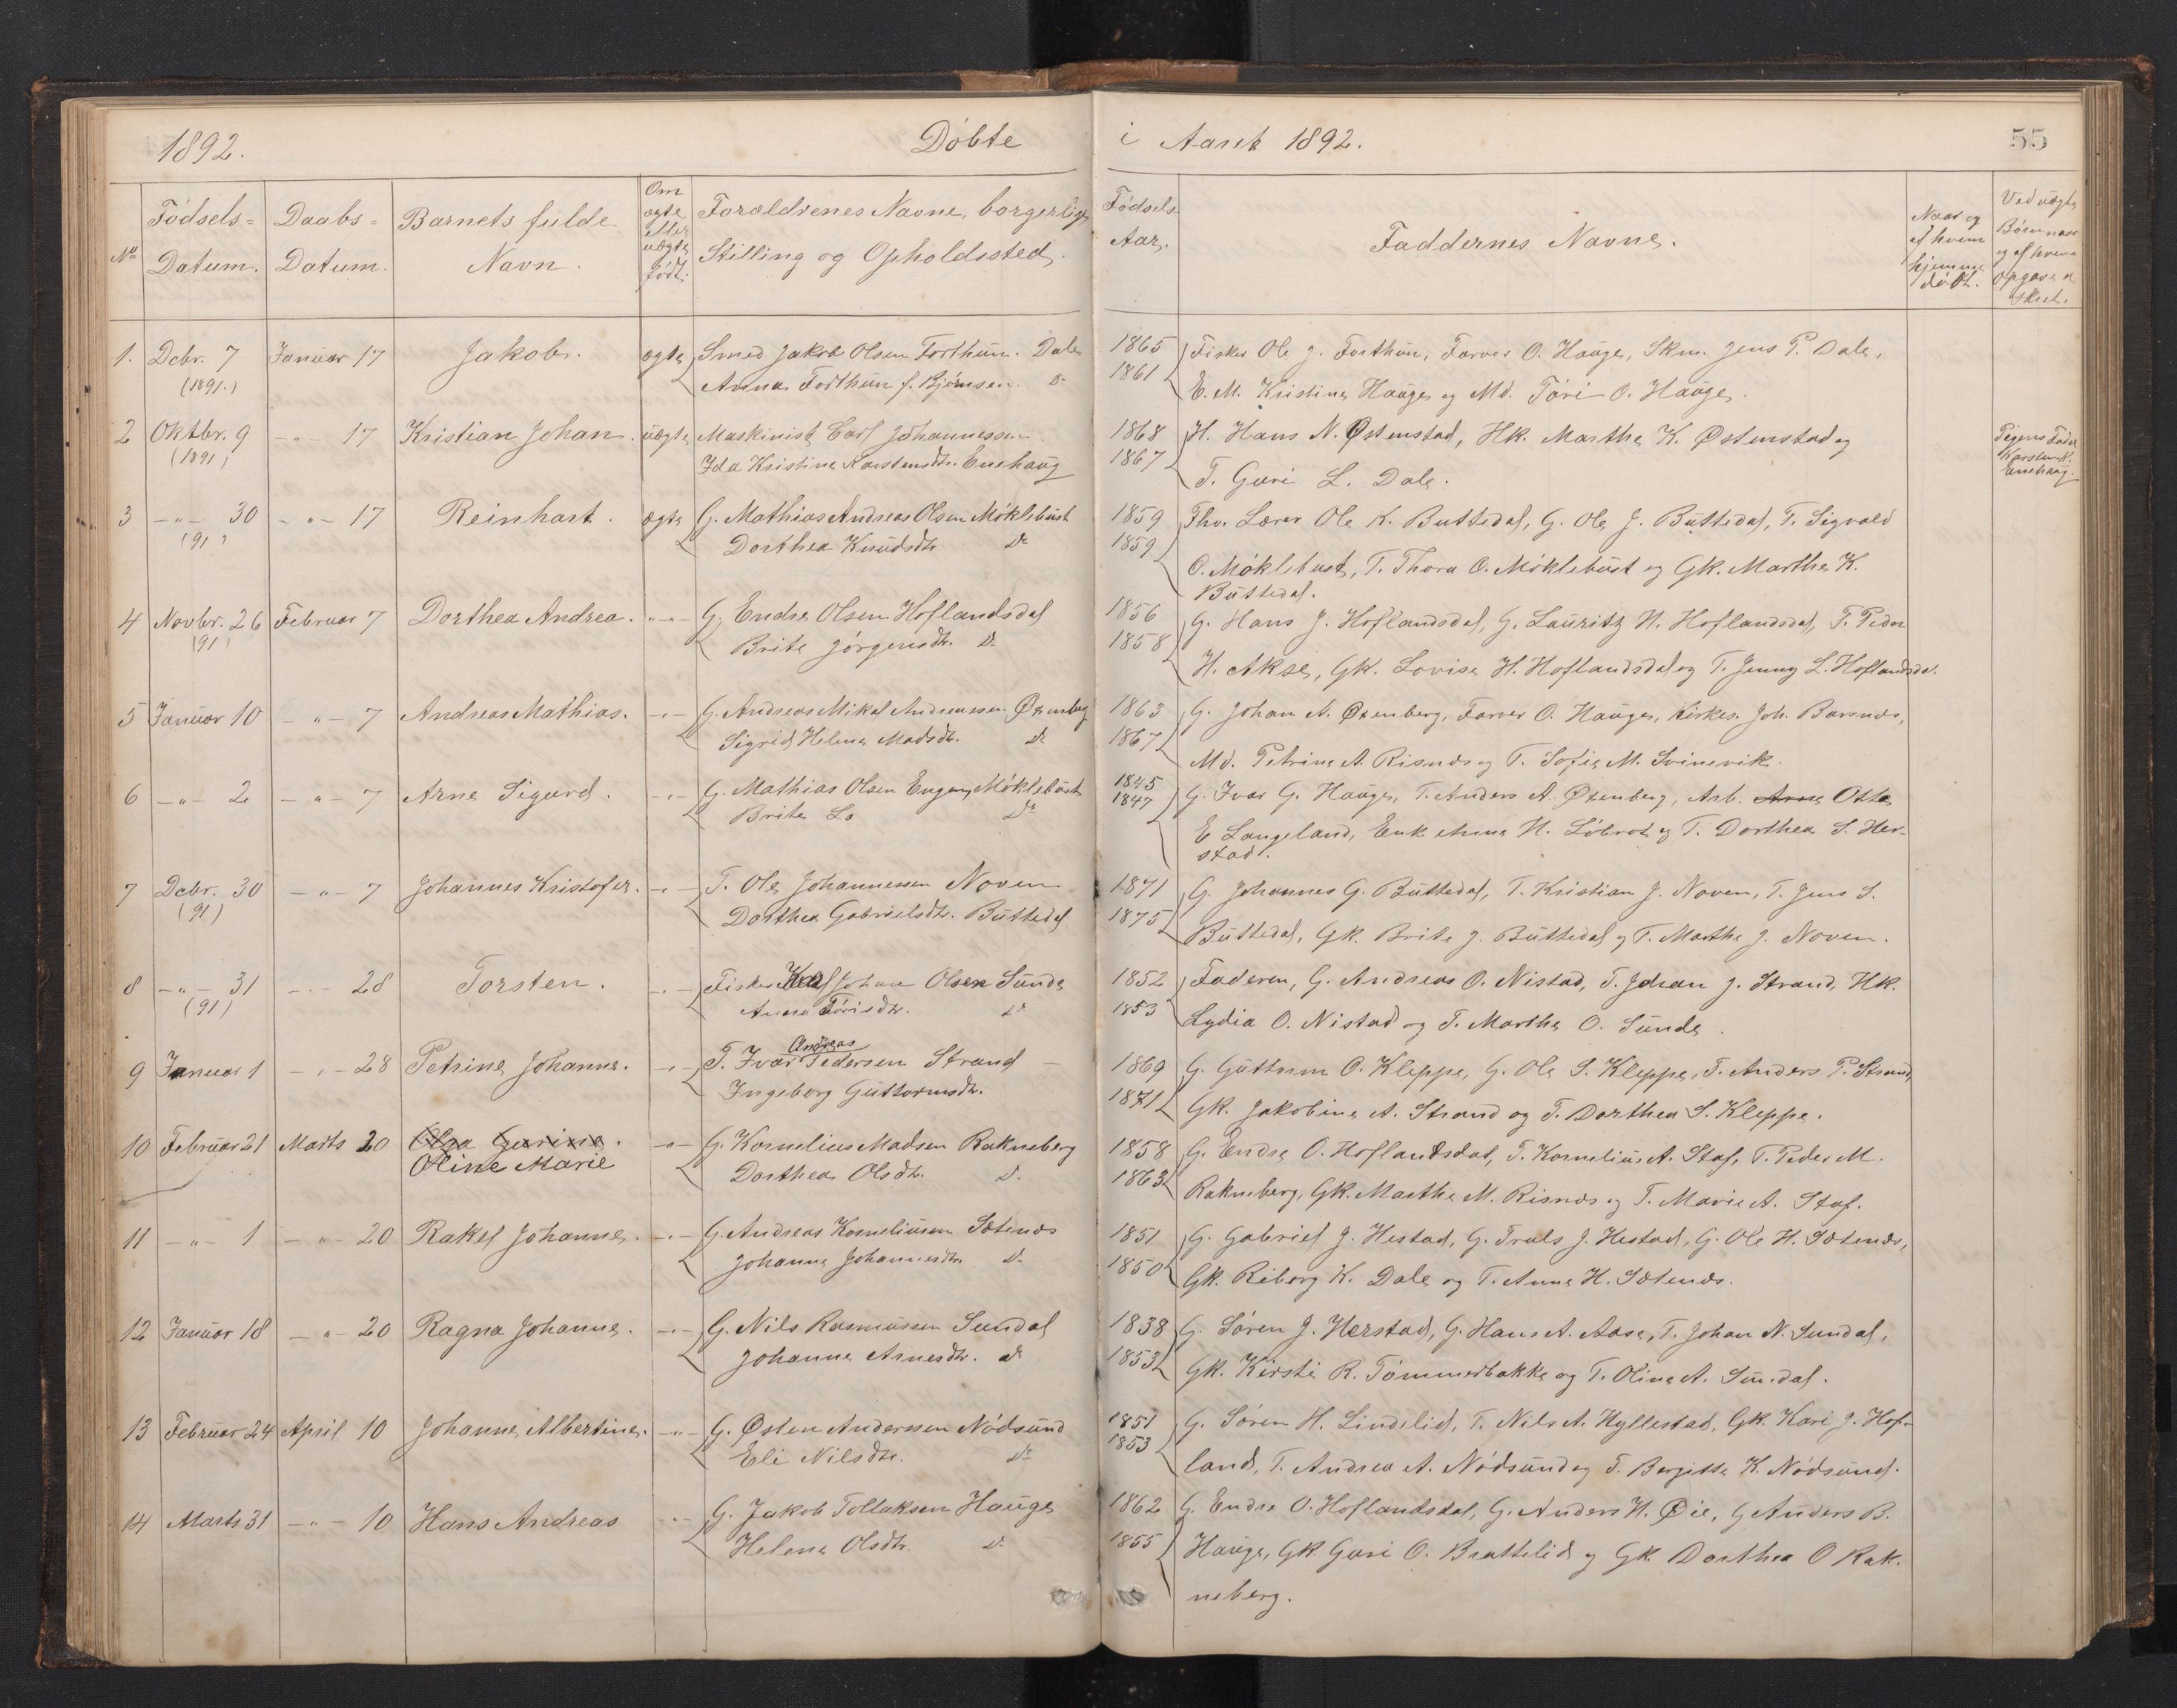 1892. Døbte i Aaret 1892. 55
No Fødsels= Datum. Daabs= Datum. Barnets fulde Navn. Om ægte eller uægte født. Forældrenes Navne, borgerlige Stilling og Opholdssted. Fødsels Aar. Faddernes Navne. Naar og af hvem hjemme døbt. Ved uægte Børn naar og af hvem Opgave er skeet.
1. Debr. 7 Januar 17 Jakob. ægte Smed Jakob Olsen Forthun. Dale 1865 Fisker Ole J. Forthun, Farver O. Hauge, Skm. Jens P. Dale,
(1891.) Anna Forthun f. Bjørnsen. Do 1861 E. M. Kristine Hauge og Md. Töri O. Hauge.
2 Oktbr. 9 -"- 17 Kristian Johan. uægte Maskinist Carl Johannessen 1868 H. Hans N. Østenstad, Hk. Marthe K. Østenstad og Pigens Fader
(1891) Ida Kristine Karstensdtr. Enehaug 1867 T. Guri L. Dale. Karsten Enehaug.
3 -"- 30 -"- 17 Reinhart. ægte G. Mathias Andreas Olsen Møklebust 1859 Fhv. Lærer Ole K. Buttedal, G. Ole J. Buttedal, T. Sigvald
(91) Dorthea Knudsdtr. Do 1859 O. Møklebust, T. Thora O. Møklebust og Gk. Marthe K.
Buttedal.
4 Novbr. 26 Februar 7 Dorthea Andrea. -"- G. Endre Olsen Hoflandsdal 1856 G. Hans J. Hoflandsdal, G. Lauritz H. Hoflandsdal, T. Peder
(91) Brite Jørgensdtr. Do 1858 H. Akse, Gk. Lovise H. Hoflandsdal og T. Jenny L. Hoflandsdal.
5 Januar 10 -"- 7 Andreas Mathias. -"- G. Andreas Mikal Andreassen Øxenberg 1863 G. Johan A. Øxenberg, Farver O. Hauge, Kirkes. Joh. Barsnes,
Sigrid Helene Madsdtr. Do 1867 Md. Petrine A. Risnes og T. Sofie M. Svinevik.
6 -"- 2 -"- 7 Arne Sigurd. -"- G. Mathias Olsen Engen, Møklebust 1845 G. Ivar G. Hauge, T. Anders A. Øxenberg, Arb. Arne Otte
Brite Do 1847 E Langeland, Enk. H. Løbrot og T. Dorthea S. Her-
stad.
7 Debr. 30 -"- 7 Johannes Kristofer. -"- T. Ole Johannessen Noven 1871 G. Johannes G. Buttedal, T. Kristian J. Noven, T. Jens S.
(91) Dorthea Gabrielsdtr. Buttedal 1875 Buttedal, Gk. Brite J. Buttedal og T. Marthe J. Noven.
8 -"- 31 -"- 28 Torsten. -"- Fisker Karl Johan Olsen Sunde 1852 Faderen, G. Andreas O. Nistad, T. Johan J. Strand, Hk.
(91) Anna Törisdtr. Do 1853 Lydia O. Nistad og T. Marthe O. Sunde.
9 Januar 1 -"- 28 Petrine Johanne. -"- T. Ivar Andreas Pedersen Strand 1869 G. Guttorm O. Kleppe, G. Ole S. Kleppe, T. Anders P. Strand,
Ingeborg Guttormsdtr. 1871 Gk. Jakobine A. Strand og T. Dorthea S. Kleppe.
10 Februar 21 Marts 20 Olga Gurine. -"- G. Kornelius Madsen Rakneberg 1858 G. Endre O. Hoflandsdal, T. Kornelius A. Staf, T. Peder M.
Oline Marie Dorthea Olsdtr. Do 1863 Rakneberg, Gk. Marthe M. Risnes og T. Marie A. Staf.
11 -"- 1 -"- 20 Rakel Johanne. -"- G. Andreas Korneliusen Sætenes 1851 G. Gabriel J. Hestad, G. Truls J. Hestad, G. Ole H. Sætenes,
Johanne Johannesdtr. Do 1850 Gk. Riborg K. Dale og T. Anne H. Sætenes.
12 Januar 18 -"- 20 Ragna Johanne. -"- G. Nils Rasmussen Sundal 1838 G. Søren J. Herstad, G. Hans A. Aase, T. Johan N. Sundal,
Johanne Arnesdtr. Do 1853 Gk. Kirsti R. Tømmerbakke og T. Oline A. Sundal.
13 Februar 24 April 10 Johanne Albertine. -"- G. Østen Anderssen Nødsund 1851 G. Søren H. Lindelid, T. Nils A. Hyllestad, Gk. Kari J. Hof-
Eli Nilsdtr. Do 1853 land, T. Andrea A. Nødsund og T. Bergitte K. Nødsund.
14 Marts 31 -"- 10 Hans Andreas -"- G. Jakob Tollaksen Hauge 1862 G. Endre O. Hoflandsdal, G. Anders H. Øie, G Anders B.
Helene Olsdtr. Do 1855 Hauge, Gk. Guri O. Brattelid og Gk. Dorthea O Rak-
neberg.